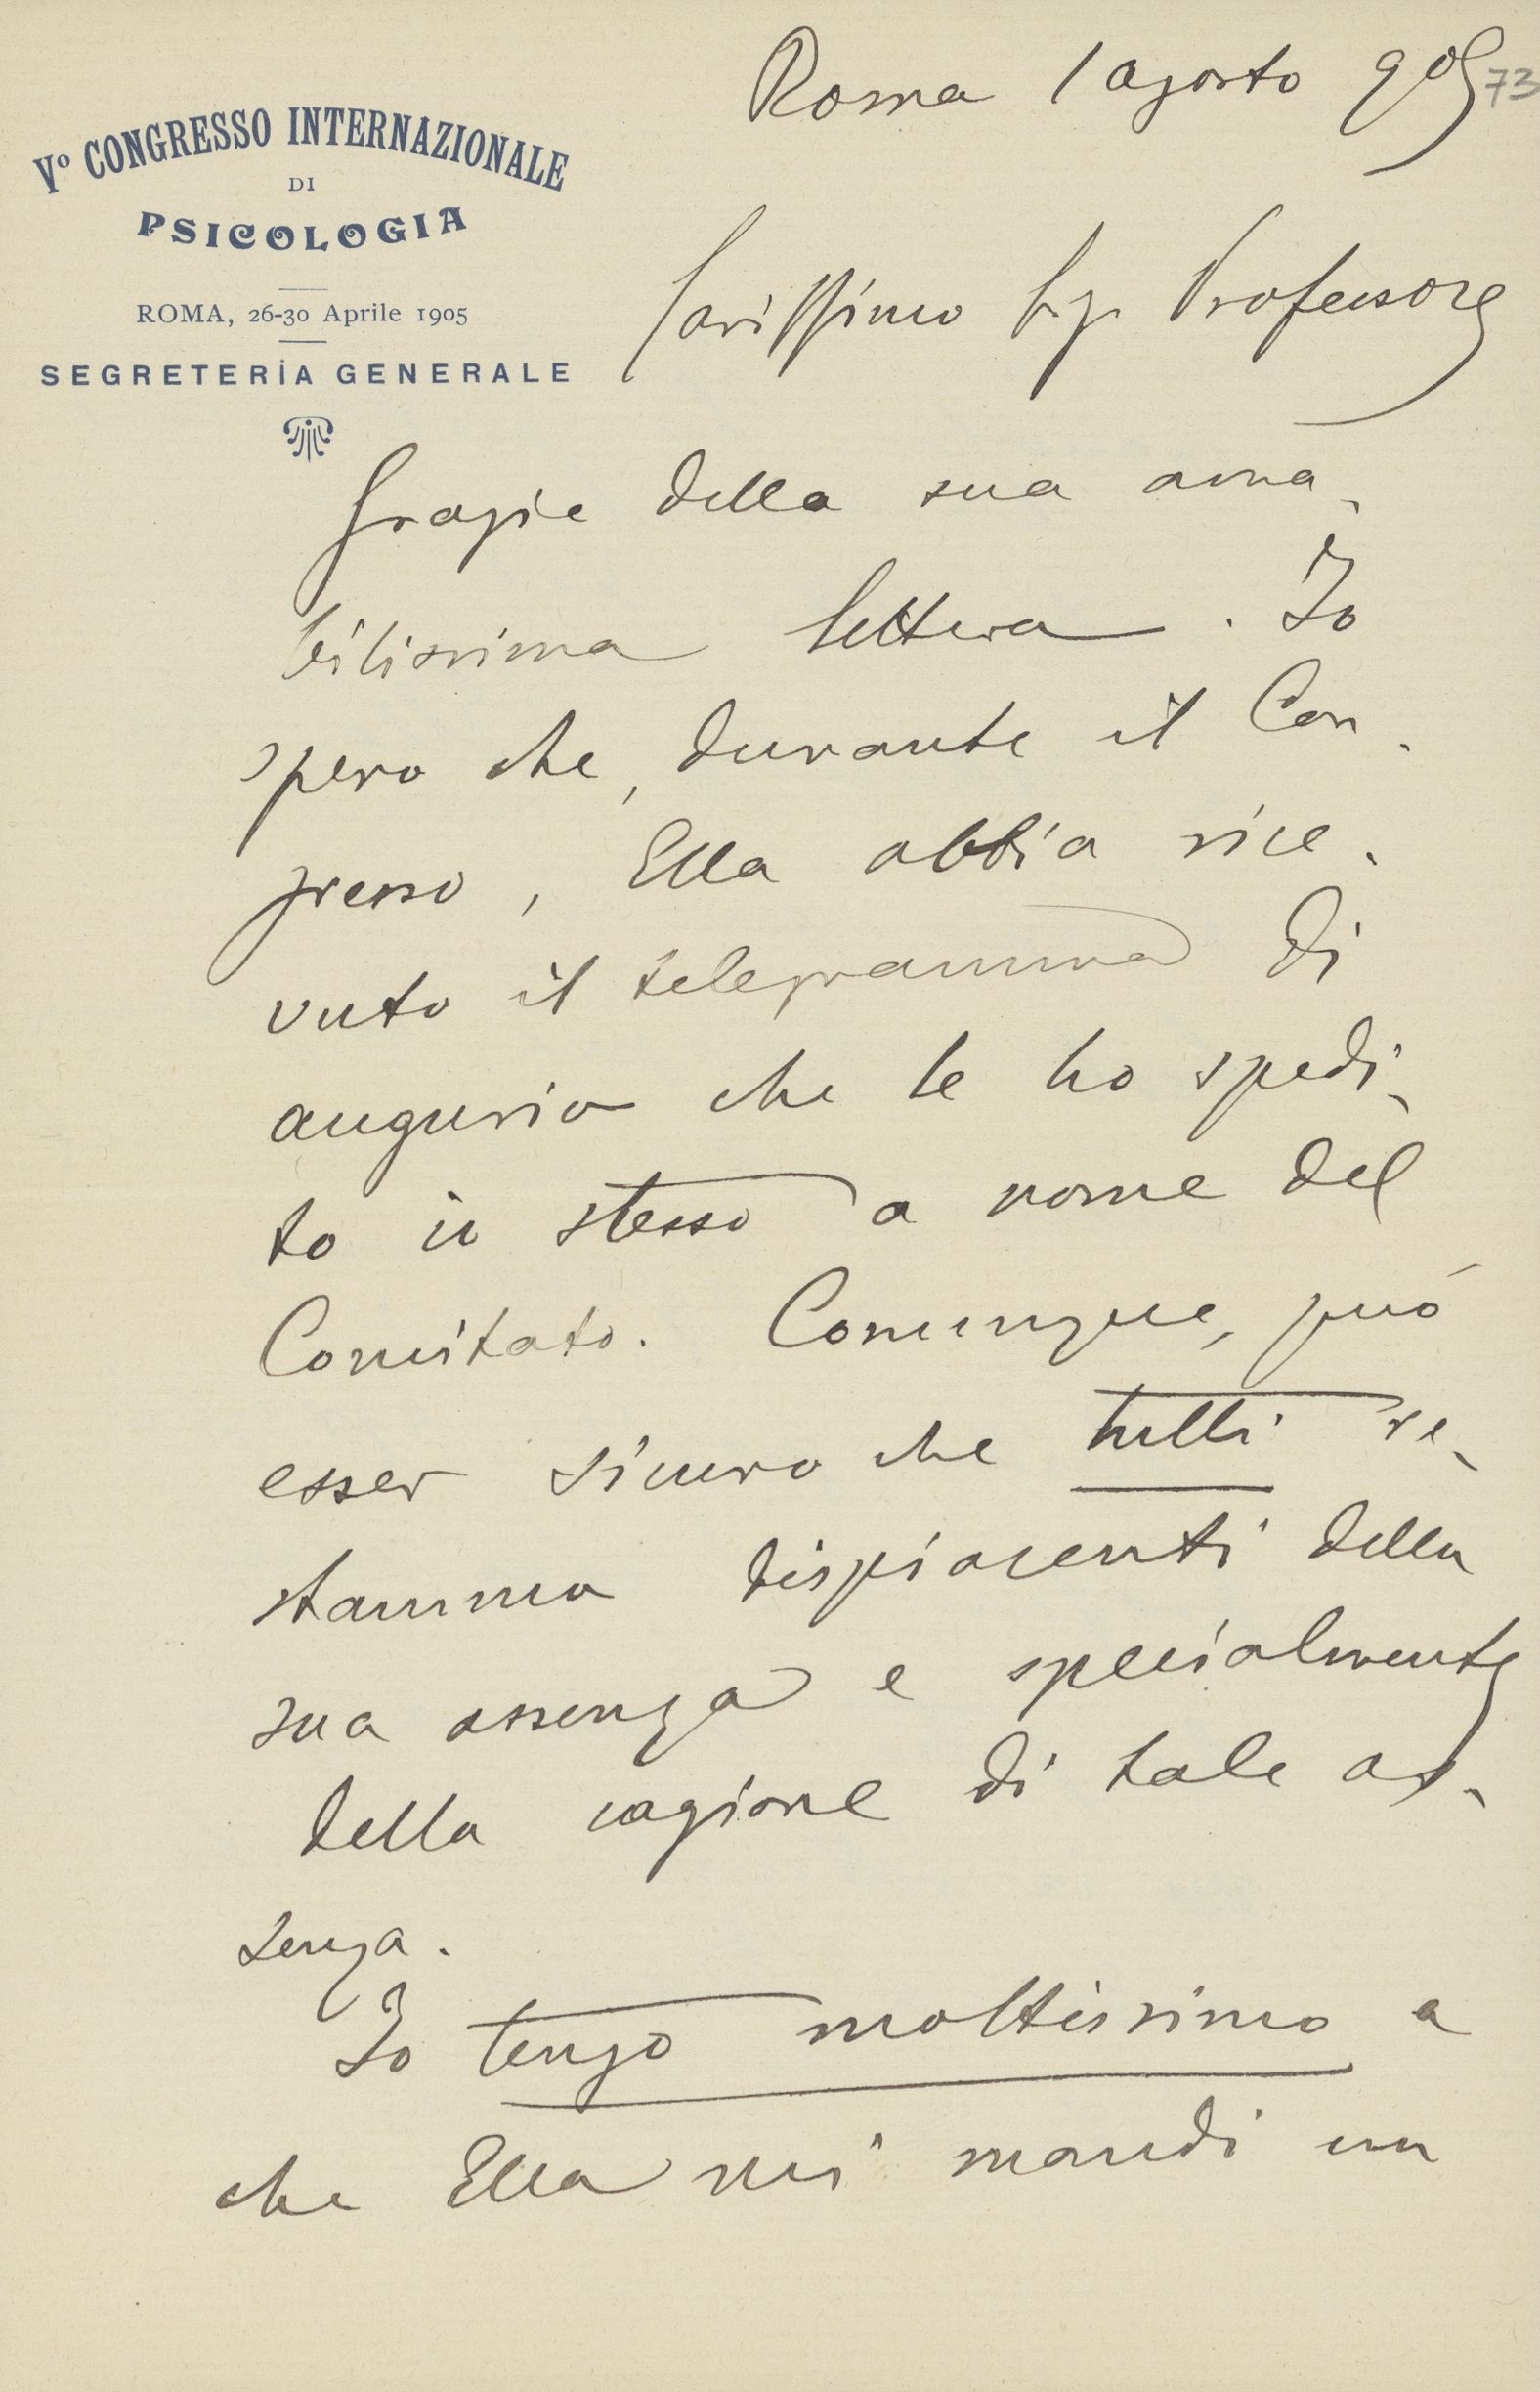 Roma 1 agosto 905
73
Vº CONGRESSO INTERNAZIONALE
DI
PSICOLOGIA
ROMA, 26-30 Aprile 1905
SEGRETERIA GENERALE
Carissimo Sig. Professore
Grazie della sua ama-
bilissima lettera. Io
spero che, durante il Con-
gresso, Ella abbia rice-
vuto il telegramma di
augurio che le ho spedi-
to io stesso a nome del
Comitato. Comunque, può
esser sicuro che tutti re-
stammo dispiacenti della
sua assenza e specialmente
della cagione di tale as-
senza.
Io tengo moltissimo a
che Ella mi mandi un